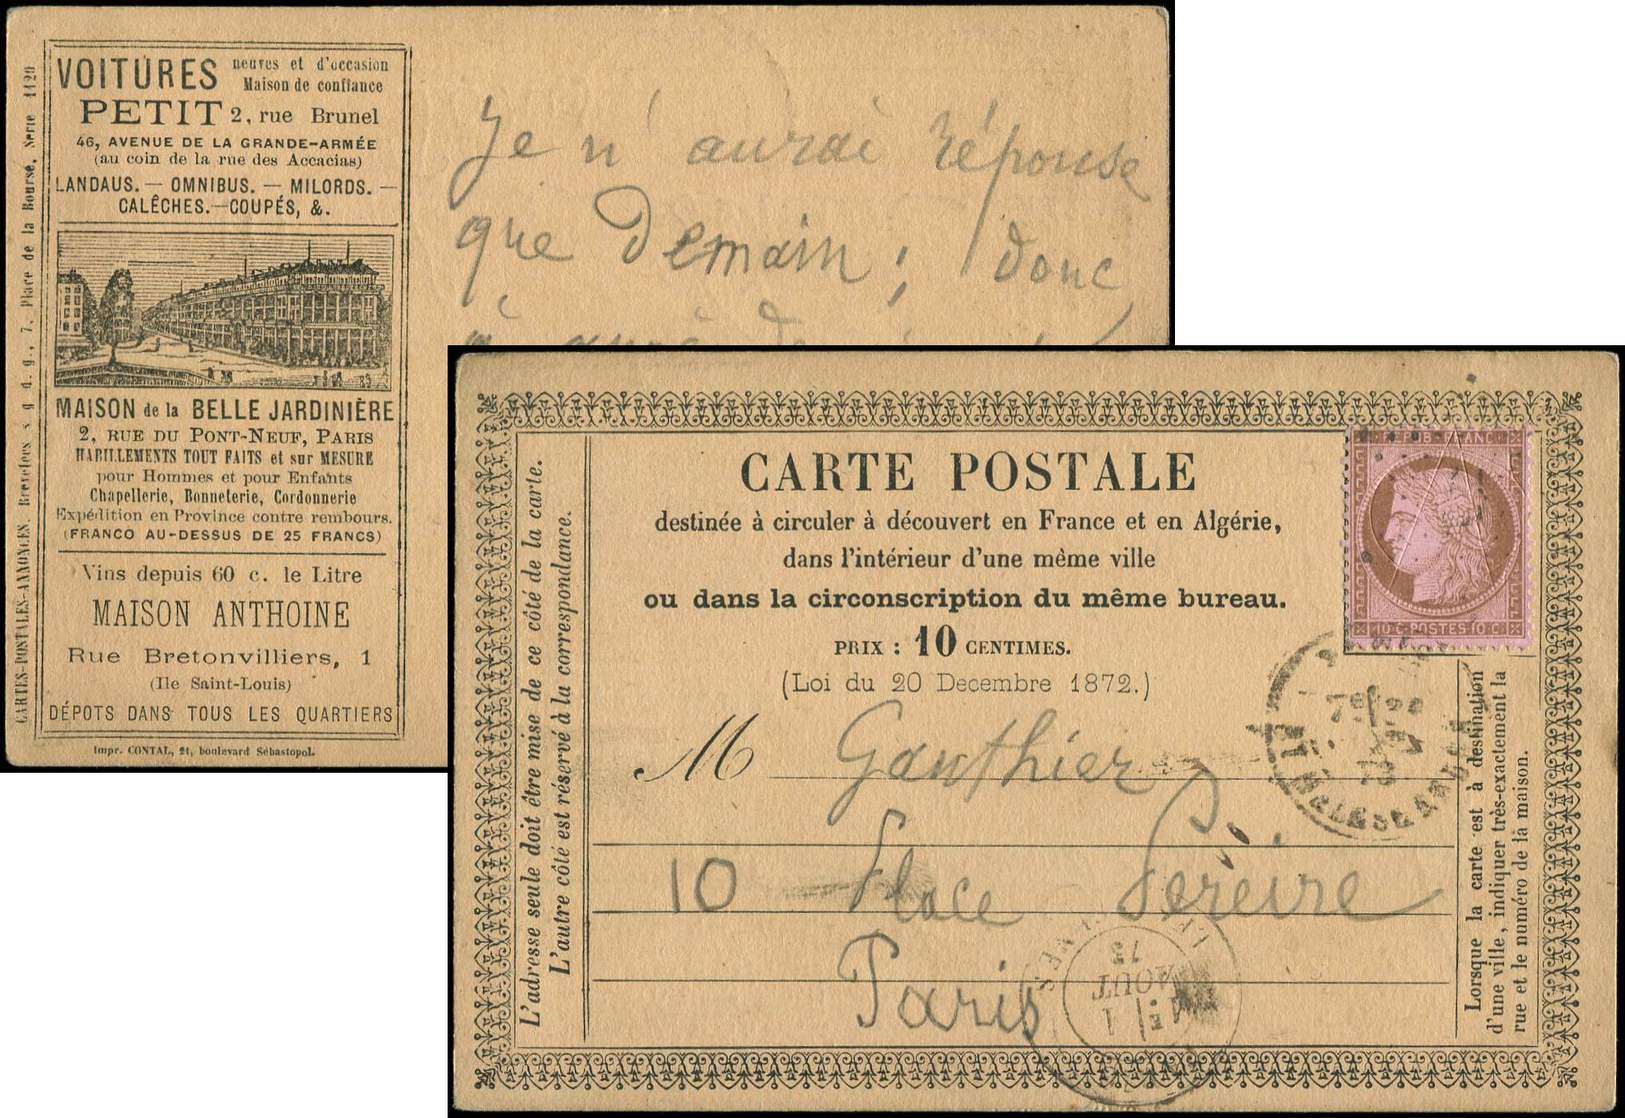 CARTES-POSTALES-ANNONCES. Brevetées s. g. d. g., 7, Place de la Bourse, Serie 1120
VOITURES neuves et d'occasion
Maison de confiance
PETIT 2, rue Brunel
46, AVENUE DE LA GRANDE-ARMÉE
(au coin de la rue des Accacias)
LANDAUS. — OMNIBUS. — MILORDS. —
CALÊCHES.—COUPÉS, &.
MAISON de la BELLE JARDINIÈRE
2, RUE DU PONT-NEUF, PARIS
HABILLEMENTS TOUT FAITS et sur MESURE
pour Hommes et pour Enfants
Chapellerie, Bonneterie, Cordonnerie
Expédition en Province contre rembours.
(FRANCO AU-DESSUS DE 25 FRANCS)
Vins depuis 60 c. le Litre
MAISON ANTHOINE
Rue Bretonvilliers, 1
(Ile Saint-Louis)
DÉPOTS DANS TOUS LES QUARTIERS
Impr. CONTAL, 21, boulevard Sébastopol.
Je n'aurai réponse
que Demain; donc
CARTE POSTALE
destinée à circuler à découvert en France et en Algérie,
dans l'intérieur d'une même ville
ou dans la circonscription du même bureau.
PRIX : 10 CENTIMES.
(Loi du 20 Decembre 1872.)
L'adresse seule doit être mise de ce côté de la carte.
L'autre côté est réservé à la correspondance.
REPUB. FRANC.
10 C. POSTES 10 C.
M Gauthier
10 Place Pereire
Paris
Lorsque la carte est à destination
d'une ville, indiquer très-exactement la
rue et le numéro de la maison.
1
AOUT
73